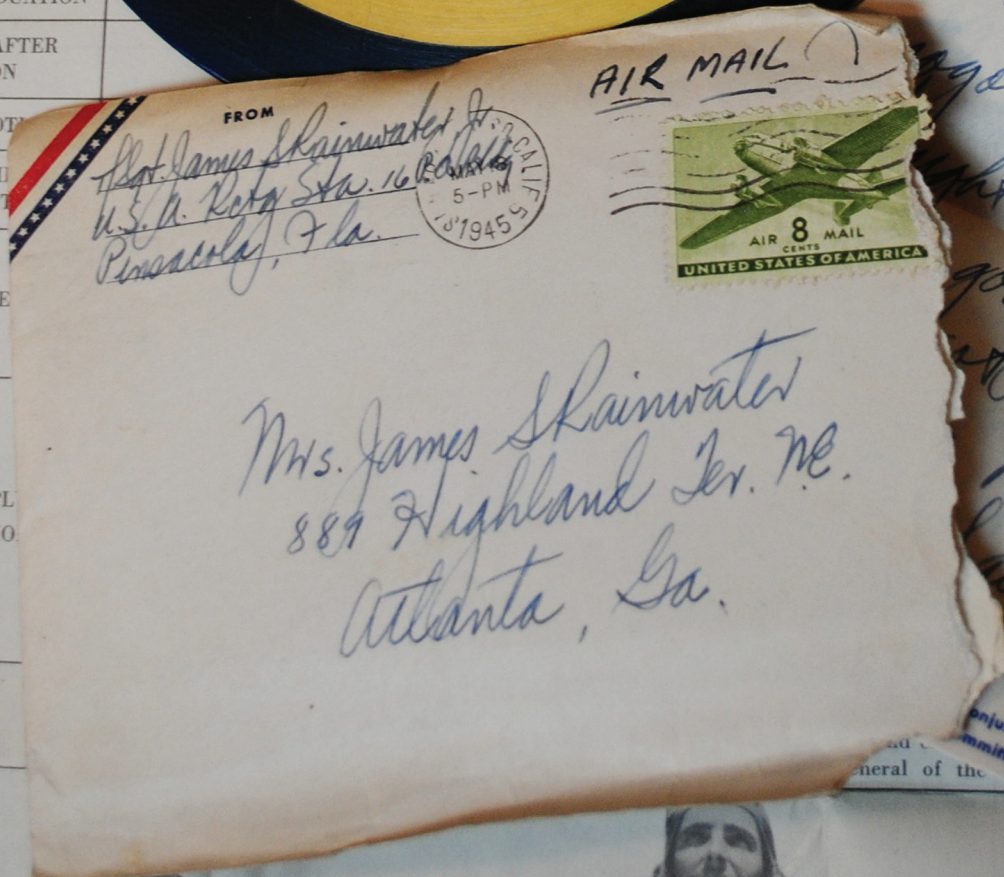 FROM
AIR MAIL
Sgt. James S Rainwater, Jr.
U.S.A. Rctg Sta. 16
Pensacola, Fla.
CALIF
MAY
5-PM
1945
AIR 8 MAIL
CENTS
UNITED STATES OF AMERICA
Mrs. James S Rainwater
889 Highland Ter. N.E.
Atlanta, Ga.
AFTER
eneral of the